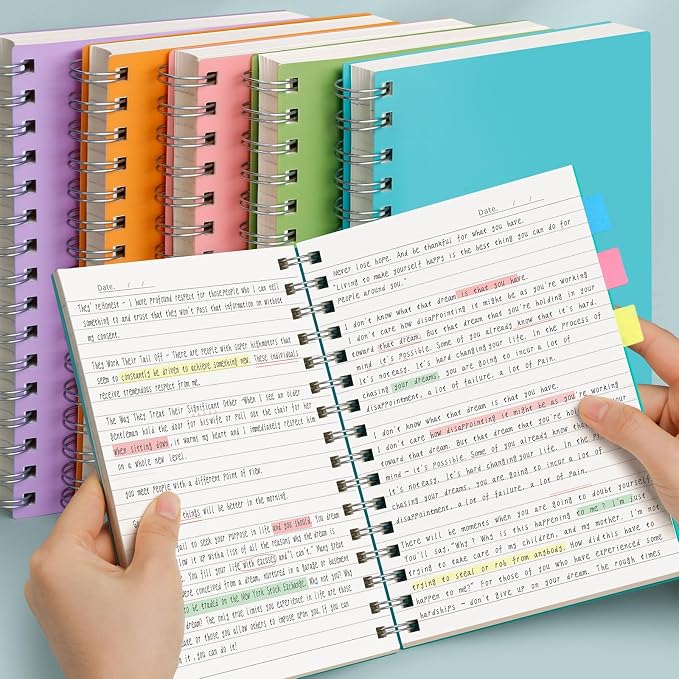 Date. / /
They're Honest – I have profound respect for those people who I can tell
something to and trust that they won't pass that information on without
my consent.
They Work Their Tail Off – There are people with super highmotors that
seem to constantly be driven to achieve something new. These individuals
receive tremendous respect from me.
The Way They Treat Their Significant Other "When I see an older
gentleman hold the door for his wife or pull out the chair for her
when sitting down, it warms my heart and I immediately respect him
on a whole new level.
you meet people with a different point of view.
things will be better in the morning.
to seek your purpose in life and you should. You dream
low it up with a list of all the reasons why the dream is
You fill your life with excuses and "I can't." Many great
were conceived from a dream, nurtured in a garage or basement
to be traded on the New York Stock Exchange. Why not you? Why
The only true limits you experience in life are those
or those you allow others to impose upon you. If you can
it, you can do it!
Date. / /
Never lose hope. And be thankful for what you have.
"Living to make yourself happy is the best thing you can do for
people around you."
I don't know what that dream is that you have.
I don't care how disappointing it might be as you're working
toward that dream. But that dream that you're holding in your
mind – it's possible. Some of you already know that it's hard.
it's not easy. It's hard changing your life. In the process of
chasing your dreams, you are going to incur a lot of
disappointment, a lot of failure, a lot of pain.
I don't know what that dream is that you have.
I don't care how disappointing it might be as you're working
toward that dream. But that dream that you're holding in your
mind – it's possible. Some of you already know that it's hard.
it's not easy. It's hard changing your life. In the process of
chasing your dreams, you are going to incur a lot of
disappointment, a lot of failure, a lot of pain.
There will be moments when you are going to doubt yourself
You'll say, "Why? Why is this happening to me? I'm just
trying to take care of my children, and my mother. I'm not
trying to steal or rob from anybody. How did this have to
happen to me?" For those of you who have experienced some
hardships – don't give up on your dream. The rough times